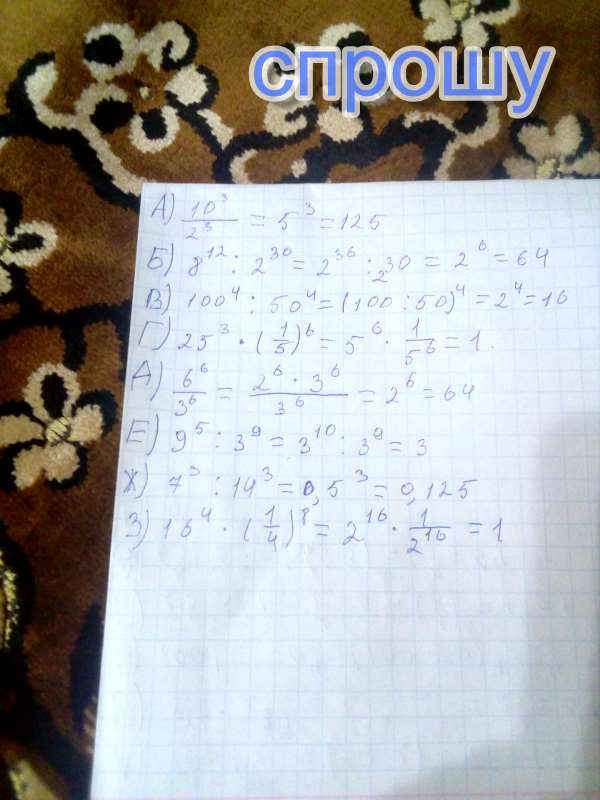 спрошу
А) 10³/2³ = 5³ = 125
Б) 8¹² : 2³⁰ = 2³⁶ : 2³⁰ = 2⁶ = 64
В) 100⁴ : 50⁴ = (100 : 50)⁴ = 2⁴ = 16
Г) 25³ · (1/5)⁶ = 5⁶ · 1/5⁶ = 1.
Д) 6⁶/3⁶ = 2⁶ · 3⁶/3⁶ = 2⁶ = 64
Е) 9⁵ : 3⁹ = 3¹⁰ : 3⁹ = 3
Ж) 7³ : 14³ = 0,5³ = 0,125
З) 16⁴ · (1/4)⁸ = 2¹⁶ · 1/2¹⁶ = 1